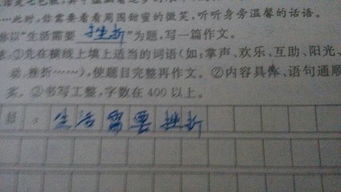 此时,你需要看看周围甜蜜的微笑,听听身旁温馨的话语。
以“生活需要 挫折 ”为题,写一篇作文。
①先在横线上填上适当的词语(如:掌声、欢乐、互助、阳光、
动、挫折……),使题目完整再作文。②内容具体、语句通顺
③书写工整,字数在 400 以上。
题:生活需要挫折